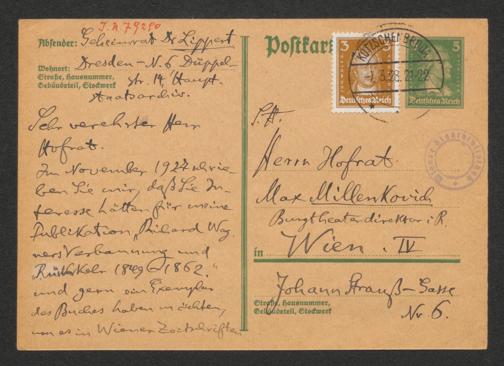 I.N. 79280
Absender: Geheimrat Dr Lippert
Wohnort: Dresden-N. 6 Düppel-
Straße, Hausnummer,
Gebäudeteil, Stockwerk
str. 14 Haupt-
staatsarchiv.
Sehr verehrter Herr
Hofrat.
Im November 1927 schrie-
ben Sie mir, daß Sie In-
teresse hätten für meine
Publikation „Richard Wag-
ners Verbannung und
Rückkehr 1849-1862."
und gern ein Exemplar
des Buches haben möchten,
um es in Wiener Zeitschriften
Postkarte
3 3
Deutsches Reich
5
Deutsches Reich
KÖTZSCHENBRODA
S. H.
Herrn Hofrat
Max Millenkovich
Burgtheaterdirektor i. R.
in Wien. IV
Johann Strauß-Gasse
Nr 6.
Straße, Hausnummer,
Gebäudeteil, Stockwerk